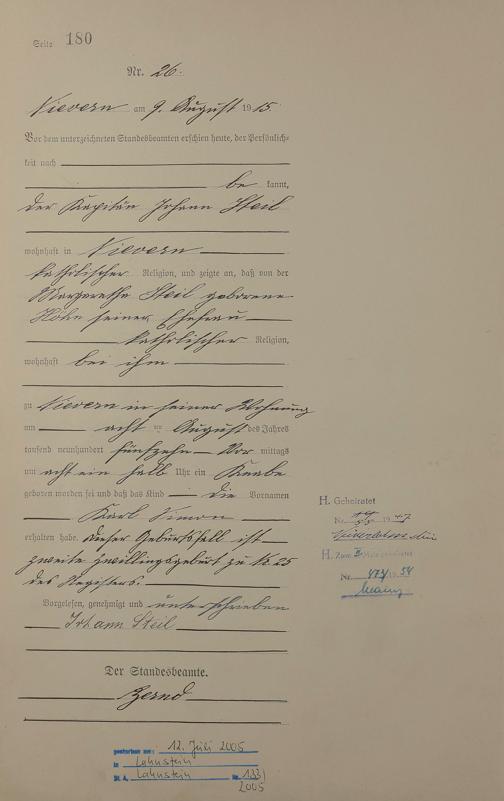 Seite 180
Nr. 26.
Nievern am 9. August 1915.
Vor dem unterzeichneten Standesbeamten erschien heute, der Persönlich-
keit nach
be kannt,
der Kapitän Johann Steil
wohnhaft in Nievern
katholischer Religion, und zeigte an, daß von der
Margaretha Steil geborene
Höhn seiner Ehefrau
katholischer Religion,
wohnhaft bei ihm
zu Nievern in seiner Wohnung
am acht ten August des Jahres
tausend neunhundert fünfzehn Vor mittags
um acht ein halb Uhr ein Knabe
geboren worden sei und daß das Kind die Vornamen
Karl Simon
erhalten habe. Dieser Geburtsfall ist
zweite Zwillingsgeburt zu Nr. 25
des Registers.
Vorgelesen, genehmigt und unterschrieben
Johann Steil
Der Standesbeamte.
H. Geheiratet
Nr. 1947
H. Zum II Mal geheiratet
Nr. 474/1954
Mainz
gestorben am: 12. Juli 2005
in Lahnstein
St. A. Lahnstein Nr. 133/
2005